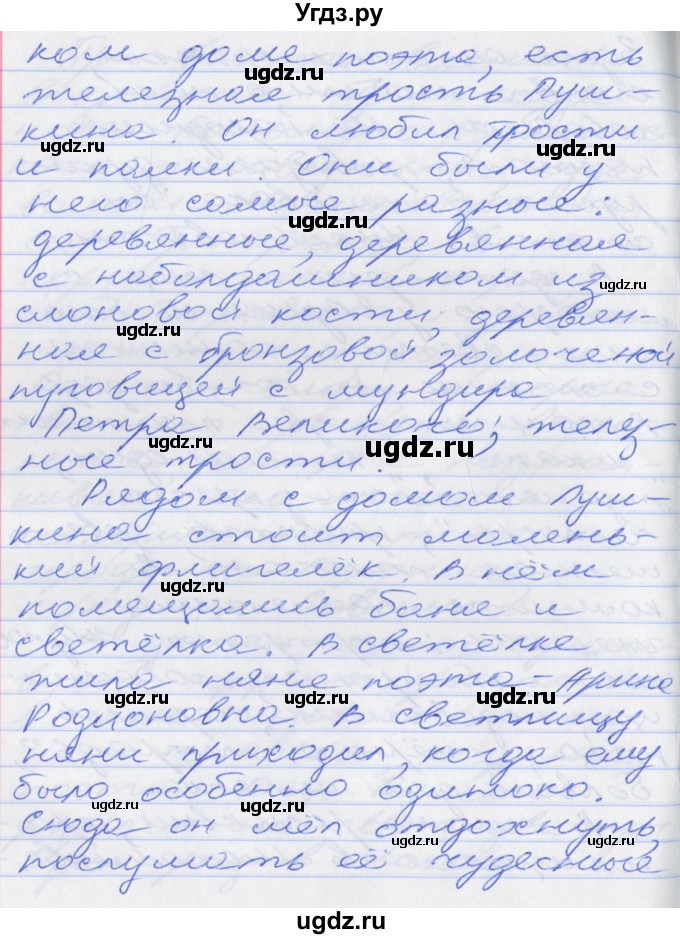 Угдз.ру
ком доме поэта, есть
ugdz.ru
железная трость Пуш-
ugdz.ru
кина. Он любил трости
ugdz.ru ugdz.ru
и палки. Они были у
него самые разные:
ugdz.ru
деревянные, деревянная
с набалдашником из
ugdz.ru
слоновой кости, деревян-
ugdz.ru
ная с бронзовой золоченой
пуговицей с мундира
Петра Великого; желез-
ugdz.ru ugdz.ru
ные трости.
Рядом с домом Пуш-
ugdz.ru
кина стоит малень-
кий флигелёк. В нём
ugdz.ru
помещались баня и
светёлка. В светёлке
жила няня поэта - Арина
ugdz.ru ugdz.ru ugdz.ru
Родионовна. В светлицу
няни приходил, когда ему
было особенно одиноко.
ugdz.ru ugdz.ru
Сюда он шёл отдохнуть,
ugdz.ru ugdz.ru
послушать её чудесные
ugdz.ru